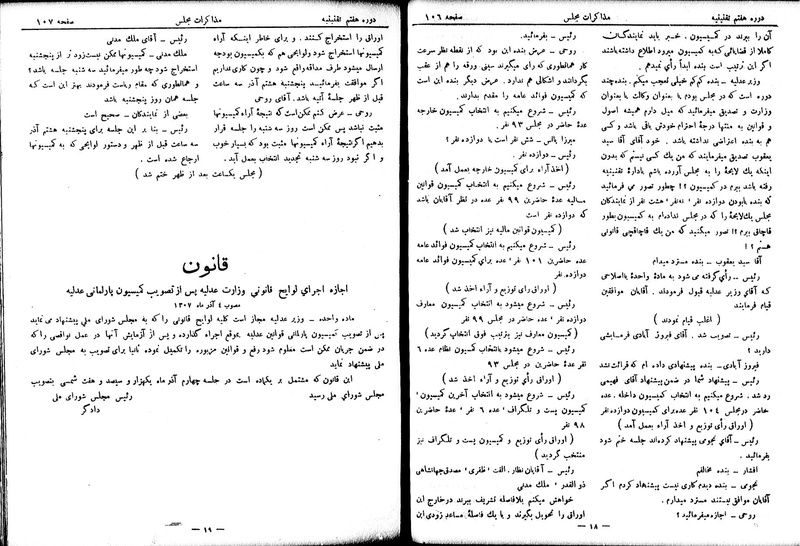 دوره هفتم تقنینیه
مذاکرات مجلس
صفحه ۱۰۶
آن را ببرند در کمیسیون . خبر باید نمایندگان
کاملا از قضایائی که به کمیسیون میرود اطلاع داشته باشند
اگر این ترتیب است بنده ابداً رأی نمیدهم .
وزیر عدلیه ـ بنده کم کم خیلی تعجب میکنم . بنده چند
دوره است که در مجلس بودم یا بعنوان وکالت یا بعنوان
وزارت و تصدیق میفرمائید که میل دارم همیشه اصول
و قوانین به منتها درجۀ احترام خودش باقی باشد و کسی
هم به بنده اعتراضی نداشته باشد . خود آقای آقا سید
یعقوب تصدیق میفرمایند که من یك کسی نیستم که بدون
اینکه یك لایحۀ را به مجلس آورده باشم بادارۀ تقنینیه
رفته باشد ببرم در کمیسیون ؟! چطور تصور می فرمائید
که بنده بابودن دوازده نفر ، نه نفر ، هشت نفر از نمایندگان
مجلس یك لایحۀ را که در مجلس نداده ام به کمیسیون بطور
قاچاق ببرم ؟! تصور میکنید که من یك قاچاقچی قانونی
هستم ؟!
آقا سید یعقوب ـ بنده مسترد میدارم
رئیس ـ رأی گرفته می شود به مادۀ واحدۀ بااصلاحی
که آقای وزیر عدلیه قبول فرمودند . آقایان موافقین
قیام فرمایند
( اغلب قیام نمودند )
رئیس ـ تصویب شد . آقای فیروز آبادی فرمایشی
دارید ؟
فیروز آبادی ـ بنده پیشنهادی داده ام که قرائت نشد
رئیس ـ پیشنهاد شما در ضمن پیشنهاد آقای فهیمی
رد شد . شروع میکنیم به انتخاب کمیسیون داخله . عده
حاضر درمجلس ۱۰٤ نفر عده برای کمیسیون دوازده نفر
( اوراق رأی توزیع و اخذ آراء بعمل آمد )
رئیس ـ آقای نجومی پیشنهاد کرده اند جلسه ختم شود
بفرمائید .
افشار ـ بنده مخالفم
نجومی ـ بنده دیدم کاری نیست پیشنهاد کردم اگر
آقایان موافق نیستند مسترد میدارم .
روحی ـ اجازه میفرمائید ؟
رئیس ـ بفرمائید .
روحی ـ عرض بنده این بود که از نقطه نظر سرعت
کار همانطوری که رأی میگیرند سینی ورقه را هم از عقب
بگردانند و اشکالی هم ندارد . عرض دیگر بنده این است
که کمیسیون فوائد عامه را مقدم بدارند .
رئیس ـ شروع میکنیم به انتخاب کمیسیون خارجه
عدۀ حاضر در مجلس ۹۳ نفر .
میرزا یانس ـ شش نفر است یا دوازده نفر ؟
رئیس ـ دوازده نفر .
( اخذ آراء برای کمیسیون خارجه بعمل آمد )
رئیس ـ شروع میکنیم به انتخاب کمیسیون قوانین
مالیه عدۀ حاضرین ۹۹ نفر عده در نظر آقایان باشد
که دوازده نفر است
( کمیسیون قوانین مالیه نیز انتخاب شد )
رئیس ـ شروع میکنیم به انتخاب کمیسیون فوائد عامه
عده حاضرین ۱۰۱ نفر عده برای کمیسیون فوائد عامه
دوازده نفر .
( اوراق رای توزیع و اخذ شد )
رئیس ـ شروع میشود به انتخاب کمیسیون معارف
عدۀ حاضرین در مجلس ۹۹ نفر
( کمیسیون معارف نیز بترتیب فوق انتخاب گردید )
رئیس ـ شروع میشود باانتخاب کمیسیون نظام عده ٦
نفر عدۀ حاضرین در مجلس ۹۳
( اوراق رأی توزیع و آراء اخذ شد )
رئیس ـ شروع میشود به انتخاب آخرین کمیسیون ،
کمیسیون پست و تلگراف ، عده ٦ نفر ، عدۀ حاضرین
۹۸ نفر
( اوراق رأی توزیع و کمیسیون پست و تلگراف نیز
منتخب گردید )
رئیس ـ آقایان نظار . الفت ، ظفری ، مصدق جهانشاهی
ذو القدر ، ملك مدنی
خواهش میکنم بلافاصله تشریف ببرند درخارج این
اوراق را تحویل بگیرند و با یك فاصلۀ مساعد زودی این
ـ ۱۸ ـ
دوره هفتم تقنینیه
مذاکرات مجلس
صفحه ۱۰۷
اوراق را استخراج کنند . و برای خاطر اینکه آراء
کمیسیونها استخراج شود ولوایحی هم که بکمیسیون بودجه
ارسال میشود طرف مداقه واقع شود و چون کاری نداریم
اگر موافقت بفرمائید پنجشنبه هشتم آذر سه ساعت
قبل از ظهر جلسۀ آتیه باشد . آقای روحی .
روحی ـ عرض کنم ممکن است که نتیجۀ آراء کمیسیونها
مثبت نباشد پس ممکن است روز سه شنبه را جلسه قرار
بدهیم اگر نتیجۀ آراء کمیسیونها مثبت بود که بسیار خوب
و اگر نبود روز سه شنبه تجدید انتخاب بعمل آید .
رئیس ـ آقای ملك مدنی
ملك مدنی ـ کمیسیونها ممکن نیست زود تر از پنجشنبه
استخراج شود چه طور میفرمائید سه شنبه جلسه باشد ؟
و همانطوری که مقام ریاست فرمودند بهتر این است که
جلسه همان روز پنجشنبه باشد
بعضی از نمایندگان ـ صحیح است
رئیس ـ بنا بر این جلسه برای پنجشنبه هشتم آذر
سه ساعت قبل از ظهر و دستور لوایحی که به کمیسیونها
ارجاع شده است .
( مجلس یکساعت بعد از ظهر ختم شد )
قانون
اجازه اجرای لوایح قانونی وزارت عدلیه پس از تصویب کمیسیون پارلمانی عدلیه
مصوب ٤ آذر ماه ۱۳۰۷
ماده واحده ـ وزیر عدلیه مجاز است کلیه لوایح قانونی را که به مجلس شورای ملی پیشنهاد می نماید
پس از تصویب کمیسیون پارلمانی قوانین عدلیه بموقع اجراء گذارده و پس از آزمایش آنها در عمل نواقصی را که
در ضمن جریان ممکن است معلوم شود رفع و قوانین مزبوره را تکمیل نموده ثانیا برای تصویب به مجلس شورای
ملی پیشنهاد نماید
این قانون که مشتمل بر یکماده است در جلسه چهارم آذر ماه یکهزار و سیصد و هفت شمسی بتصویب
مجلس شورای ملی رسید
رئیس مجلس شورای ملی
دادگر
ـ ۱۹ ـ